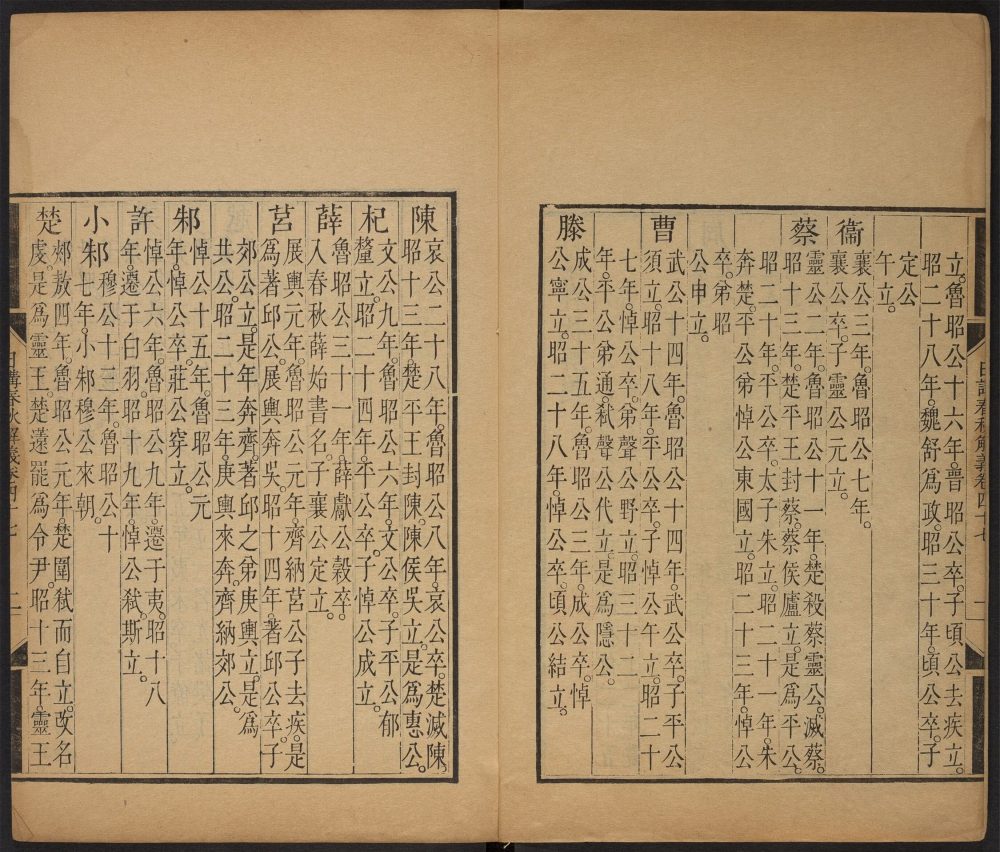 日講春秋解義卷四十七 一
立。魯昭公十六年。晉昭公卒。子頃公去疾立。
昭二十八年。魏舒爲政。昭三十年。頃公卒。子
定公
午立。
衞 襄公三年。魯昭公七年。
襄公卒。子靈公元立。
蔡 靈公二年。魯昭公十一年。楚殺蔡靈公。滅蔡。
昭十三年。楚平王封蔡。蔡侯廬立。是爲平公。
昭二十年。平公卒。太子朱立。昭二十一年。朱
奔楚。平公弟悼公東國立。昭二十三年。悼公
卒。弟昭
公申立。
曹 武公十四年。魯昭公十四年。武公卒。子平公
須立。昭十八年。平公卒。子悼公午立。昭二十
七年。悼公卒。弟聲公野立。昭三十二
年。平公弟通。弒聲公代立。是爲隱公。
滕 成公三十五年。魯昭公三年。成公卒。悼
公寧立。昭二十八年。悼公卒。頃公結立。
陳 哀公二十八年。魯昭公八年。哀公卒。楚滅陳。
昭十三年。楚平王封陳。陳侯吳立。是爲惠公。
杞 文公九年。魯昭公六年。文公卒。子平公郁
釐立。昭二十四年。平公卒。子悼公成立。
薛 魯昭公三十一年。薛獻公穀卒。
入春秋薛始書名。子襄公定立。
莒 展輿元年。魯昭公元年。齊納莒公子去疾。是
爲著邱公。展輿奔吳。昭十四年。著邱公卒。子
郊公立。是年奔齊。著邱之弟庚輿立。是爲
共公。昭二十三年。庚輿來奔。齊納郊公。
邾 悼公十五年。魯昭公元
年。悼公卒。莊公穿立。
許 悼公六年。魯昭公九年。遷于夷。昭十八
年。遷于白羽。昭十九年。悼公弒。斯立。
小邾 穆公十三年。魯昭公十
七年。小邾穆公來朝。
楚 郟敖四年。魯昭公元年。楚圍弒而自立。改名
虔。是爲靈王。楚薳罷爲令尹。昭十三年。靈王
日講春秋解義卷四十七 二